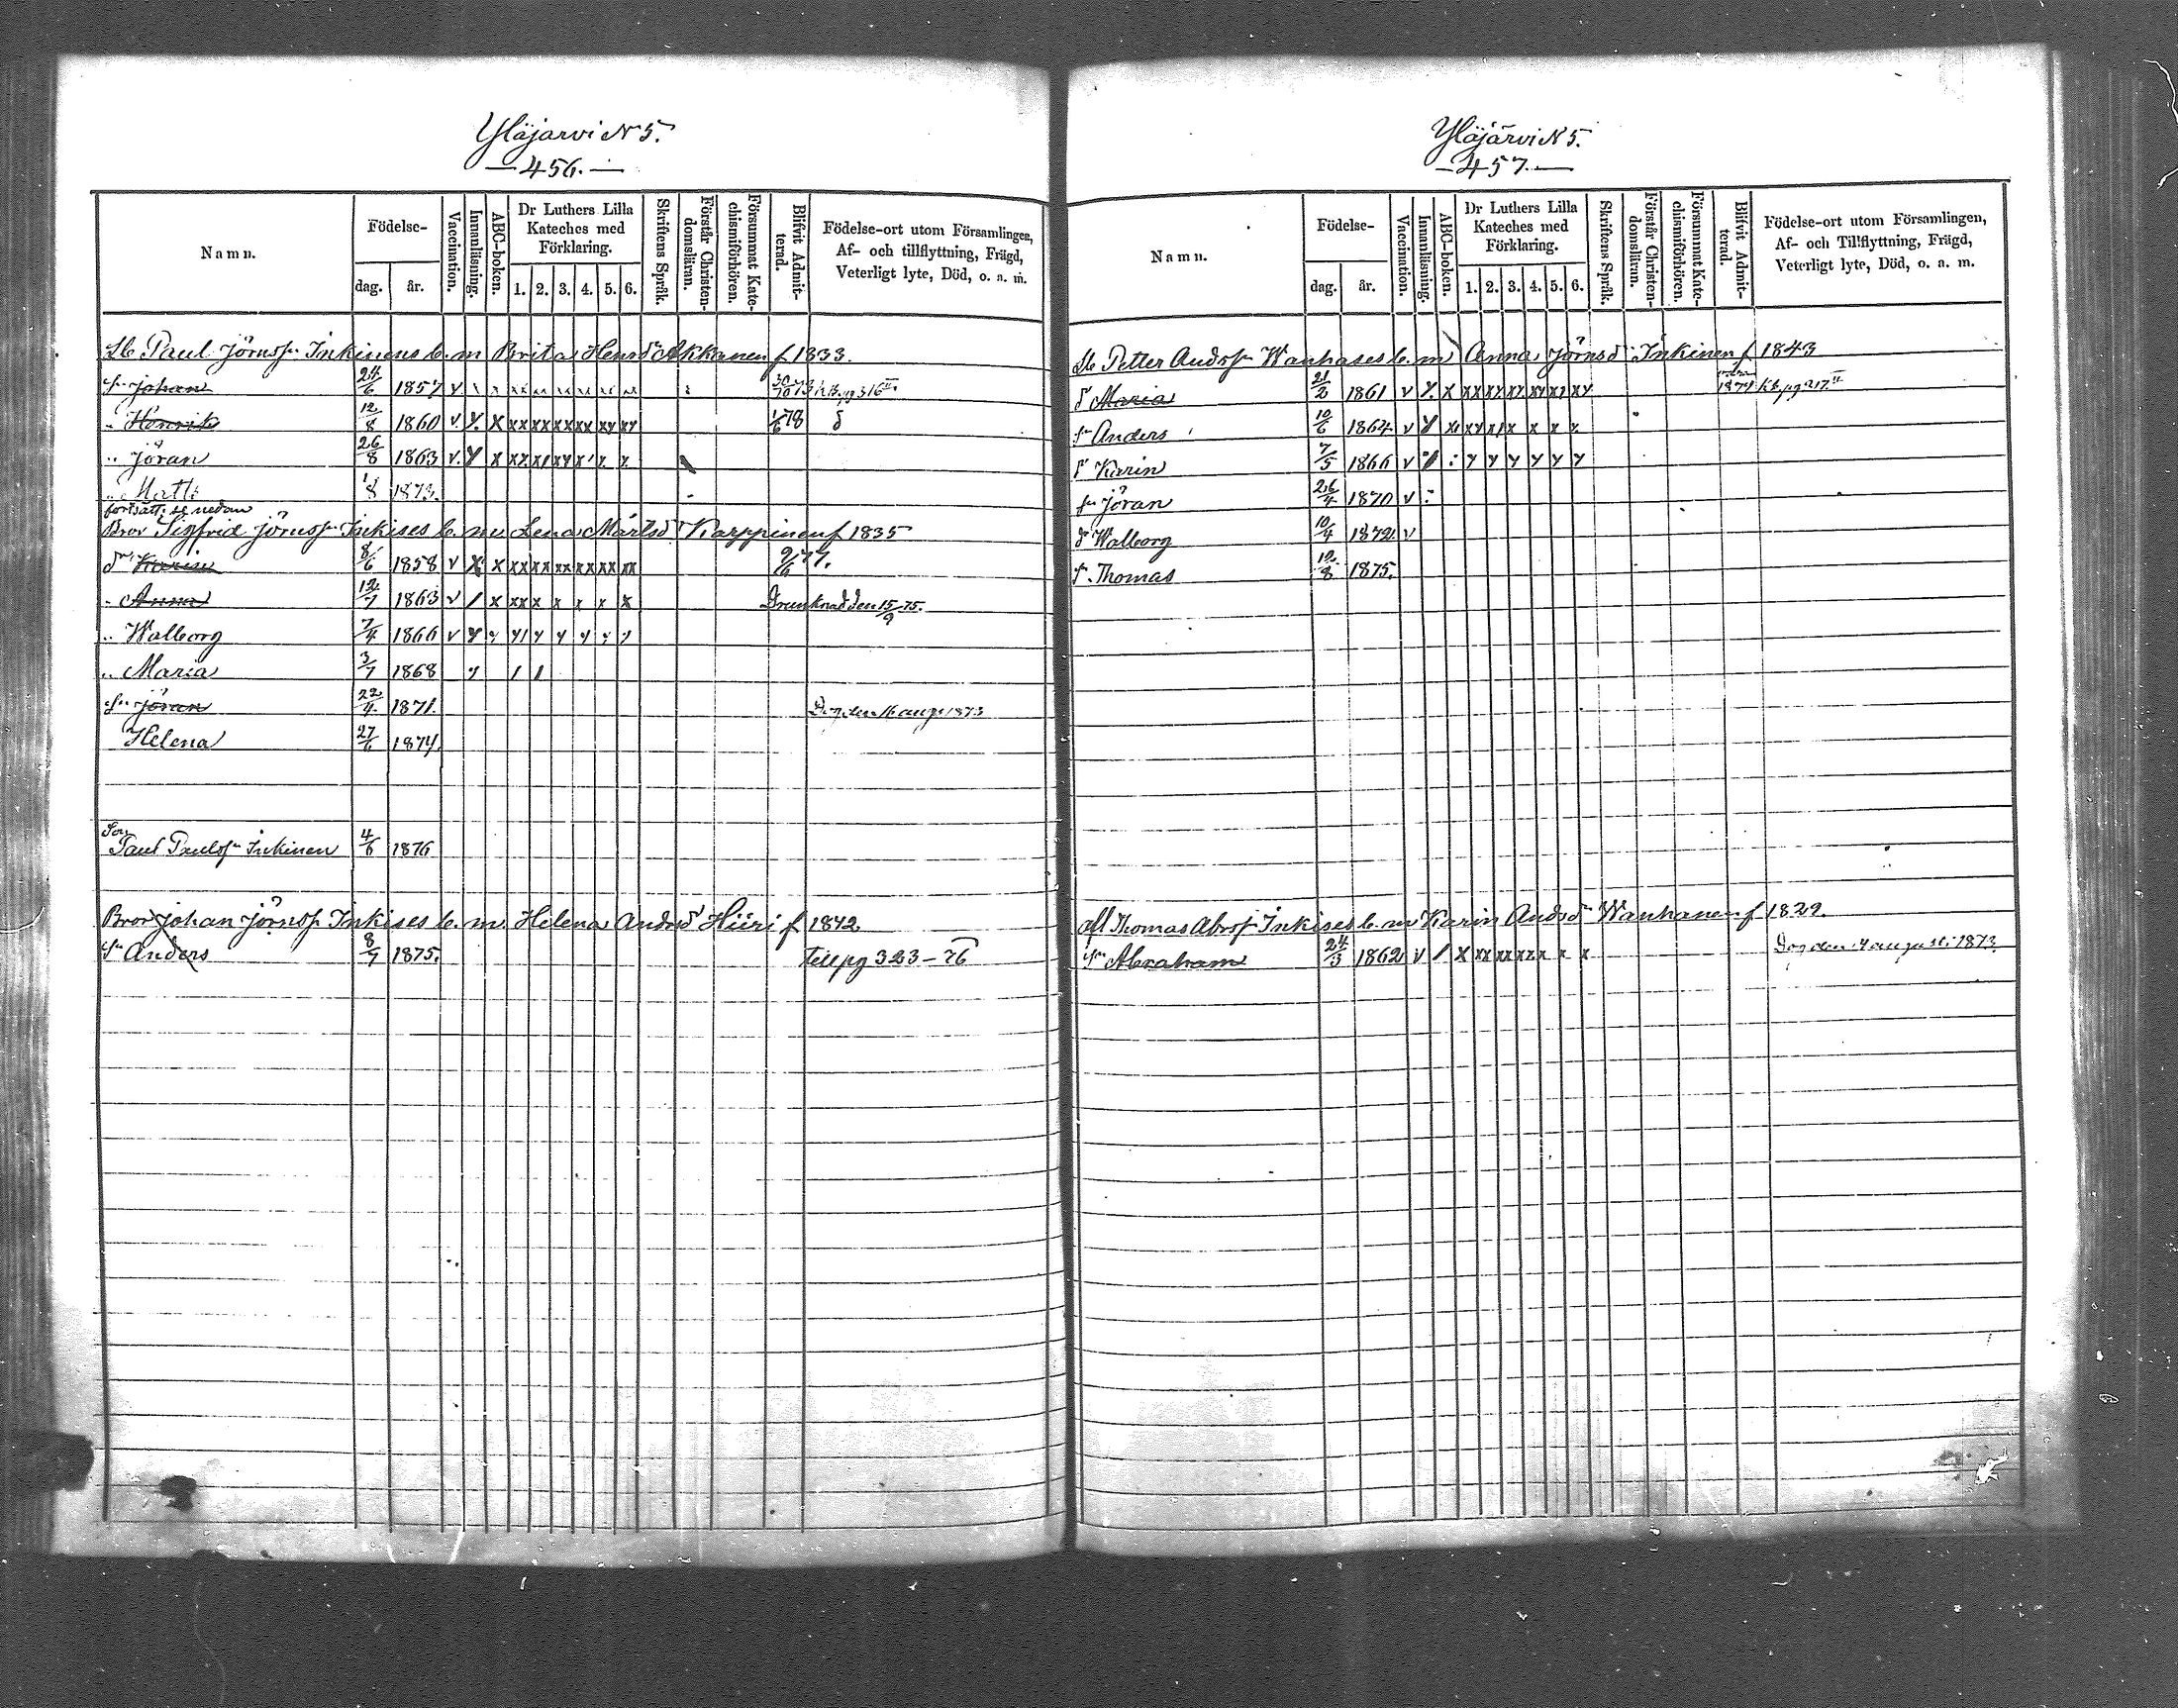 Yläjarvi N 5.
— 456. —
Namn.
Födelse-
dag.
år.
Vaccination.
Innanläsning.
ABC-boken.
Dr Luthers Lilla
Kateches med
Förklaring.
1. 2. 3. 4. 5. 6.
Skriftens Språk.
Förstår Christen-
domsläran.
Försummat Kate-
chismiförhören.
Blifvit Admit-
terad.
Födelse-ort utom Församlingen,
Af- och tillflyttning, Frägd,
Veterligt lyte, Död, o. a. m.
Paul Jörnss. Inkinens b. m Brita Hensdr Akkanen f 1833.
sn Johan 24/6 1857 v
" Henrik 12/8 1860 v x x xx xx xx xx xy xy 1/6 78
" Jöran 26/8 1863 v. y x
" Matts 1/8 1873.
fortsätt. se nedan
Bror Sigfrid Jörnss Inkises b. m Lena Mårtsdr Karppinen f 1835
dr Karin 8/6 1858 v x x xx xx xx xx xx xx 9/6 77.
" Anna 12/7 1863 v / x xx x x x x x Drunknad den 15/9 75.
" Walborg 7/4 1866 v y y y1 y y y y y
" Maria 3/7 1868 y / /
sn Jöran 22/4 1871. Dog den 16 aug. 1873
Helena 27/6 1874
Son
Paul Paulss Inkinen 4/6 1876
Bror Johan Jörnss Inkises b. m. Helena Andrsdr Hiiri f 1842
sn Anders 8/7 1875. till pg 323 – 76
Yläjärvi N 5.
— 457. —
Namn.
Födelse-
dag.
år.
Vaccination.
Innanläsning.
ABC-boken.
Dr Luthers Lilla
Kateches med
Förklaring.
1. 2. 3. 4. 5. 6.
Skriftens Språk.
Förstår Christen-
domsläran.
Försummat Kate-
chismiförhören.
Blifvit Admit-
terad.
Födelse-ort utom Församlingen,
Af- och Tillflyttning, Frägd,
Veterligt lyte, Död, o. a. m.
Petter Andrss Wanhases b. m Anna Jörnsd Inkinen f 1843
d Maria 21/2 1861 v y. x xx xy xy xy xy xy 1874
sn Anders 10/6 1864 v y
d Karin 7/5 1866 v y y y y y y
sn Jöran 26/4 1870 v
dr Walborg 10/4 1872 v
s. Thomas 19/8 1875.
Thomas Abrss Inkises b. m Karin Andsdr Wanhanen f 1829.
sn Abraham 24/3 1862 v / x xx xx xx x x x Dog den 4 augusti 1873